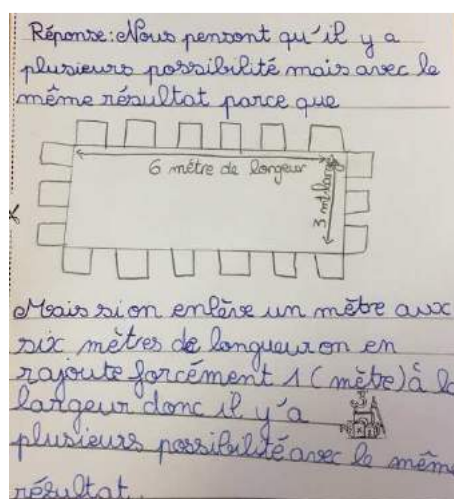 Réponse: Nous pensont qu'il y a
plusieurs possibilité mais avec le
même résultat parce que
6 mètre de longeur
3 mt large
Mais si on enlève un mètre aux
six mètres de longueur on en
rajoute forcément 1 (mètre) à la
largeur donc il y'a
plusieurs possibilité avec le même
résultat.